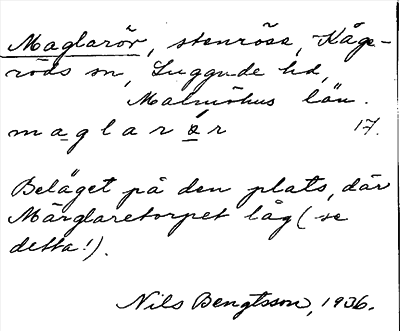 Maglarör, stenröse, Kåge-
röds sn, Luggude hd,
Malmöhus län.
maglarör 17.
Beläget på den plats, där
Märglaretorpet låg (se
detta!).
Nils Bengtsson, 1936.